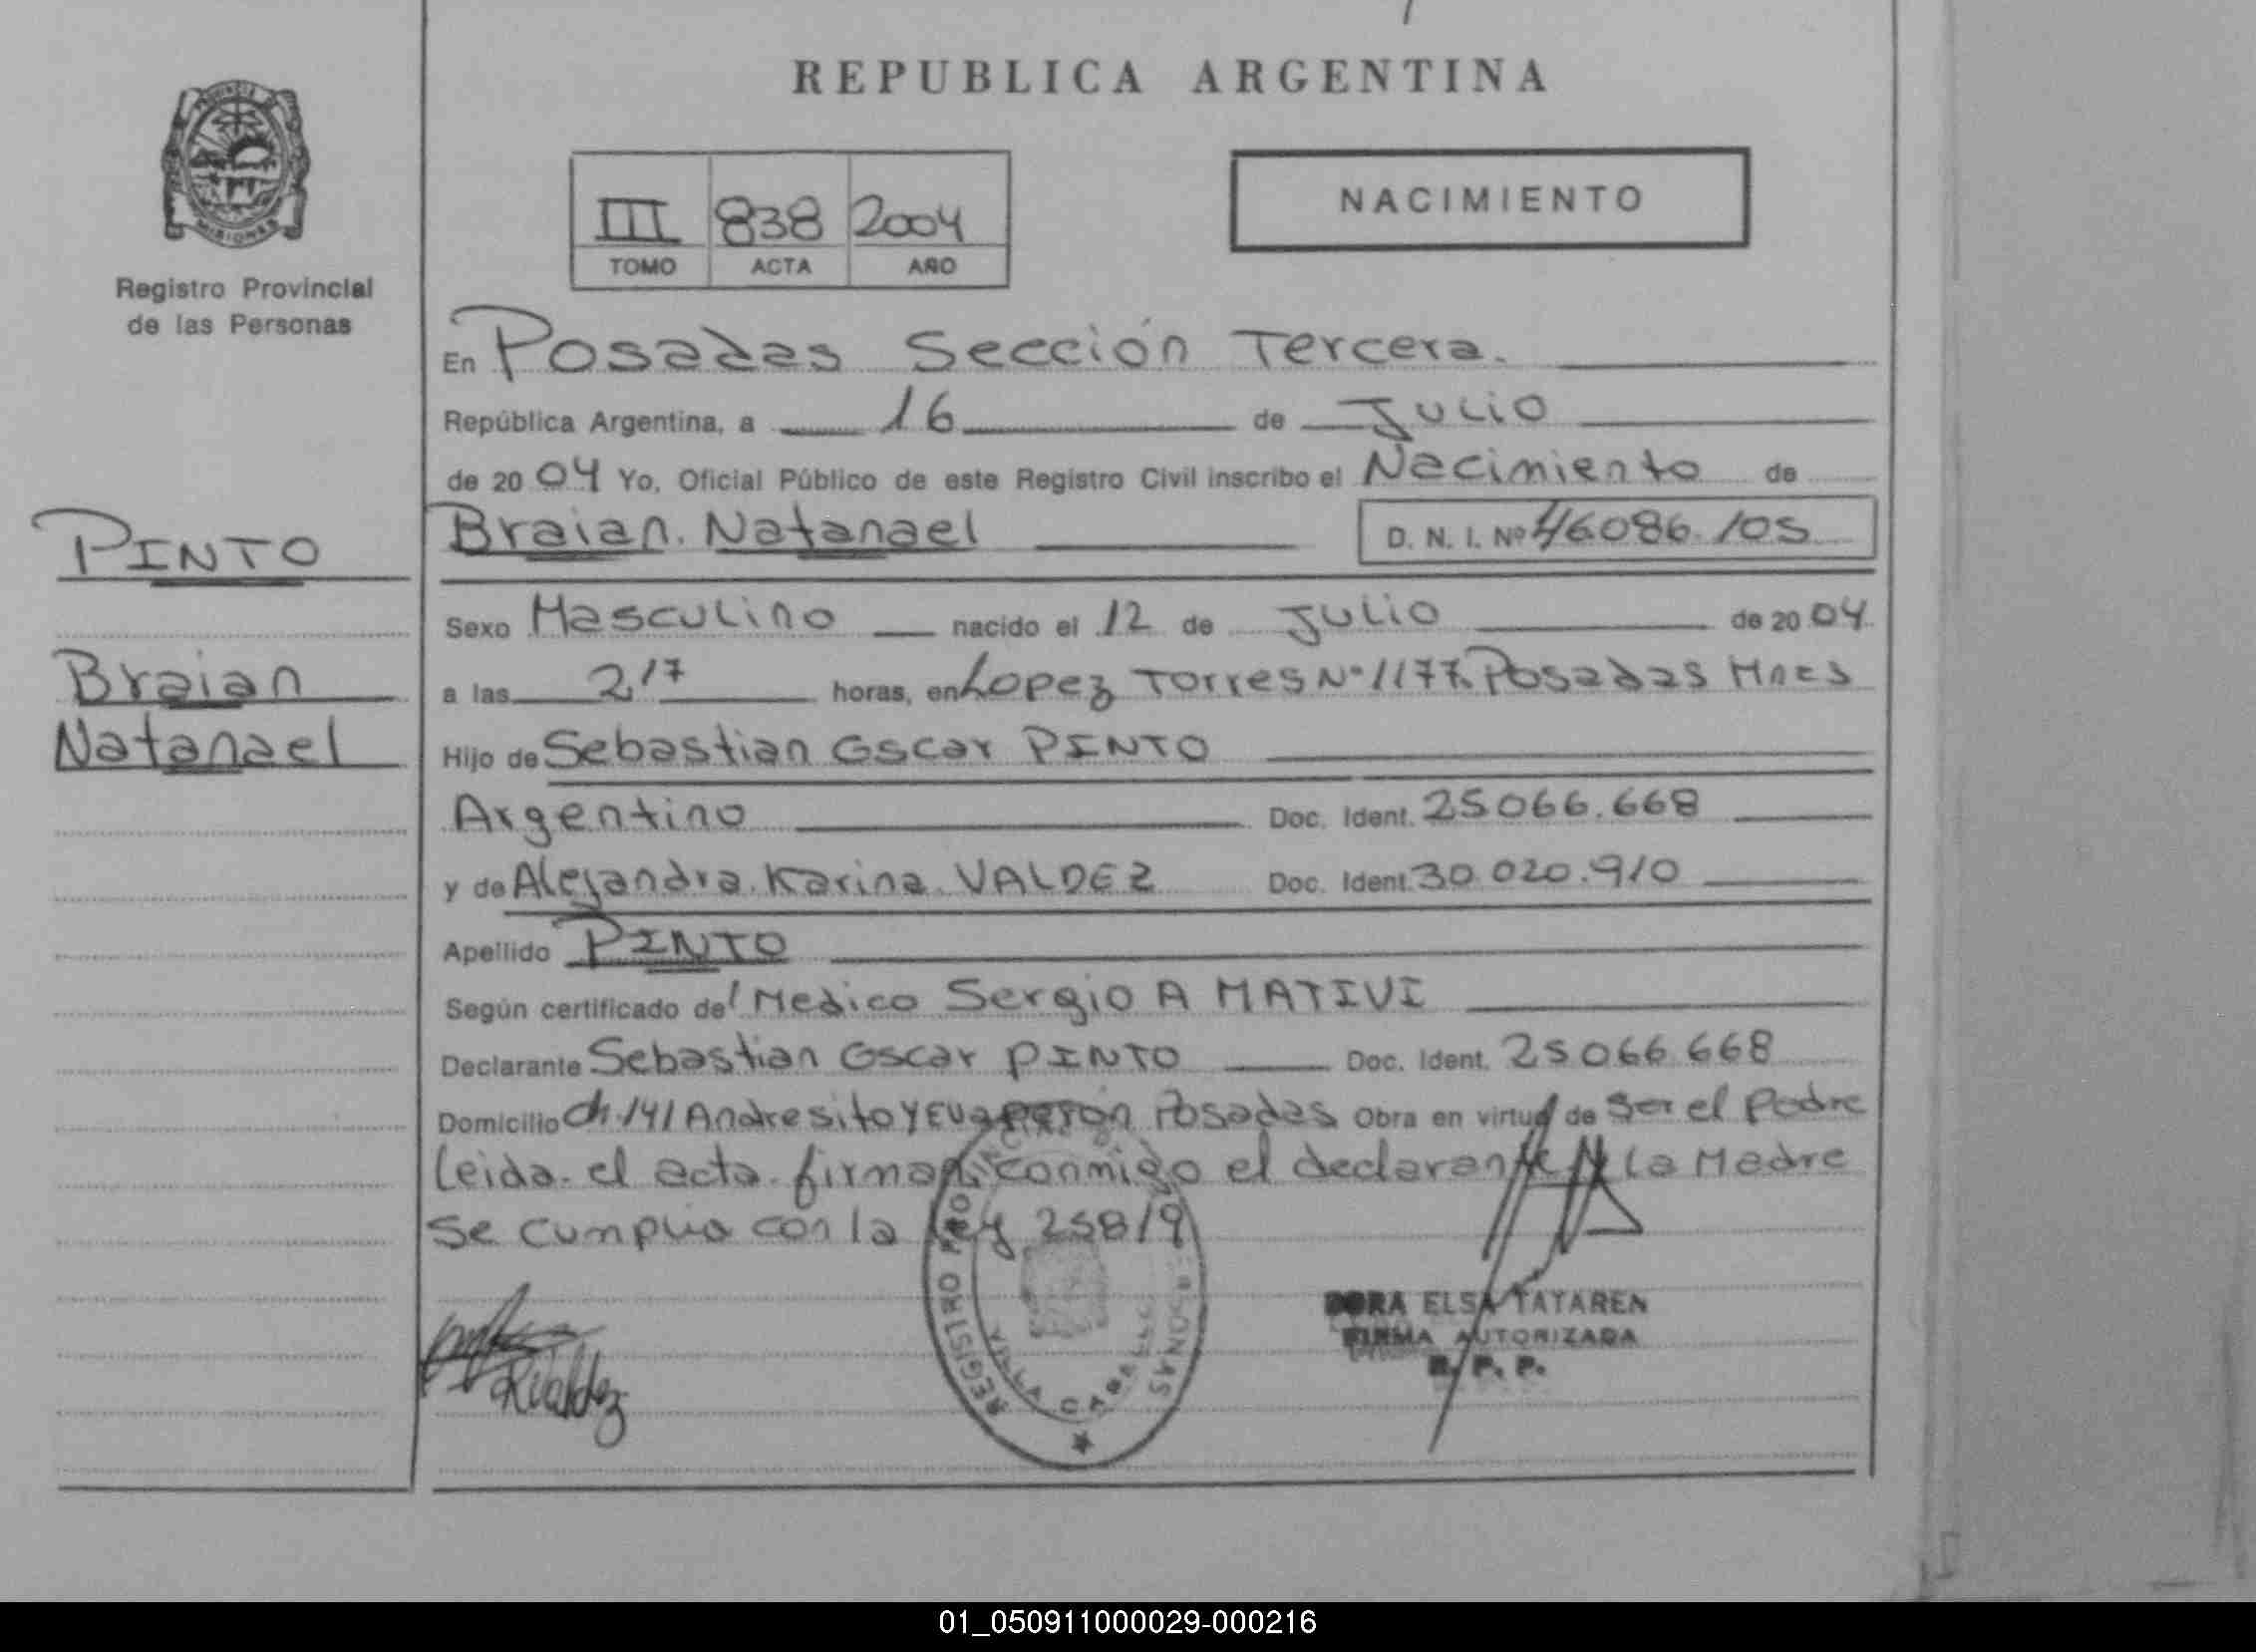 REPUBLICA ARGENTINA
PROVINCIA DE
MISIONES
Registro Provincial
de las Personas
III 838 2004
TOMO ACTA AÑO
NACIMIENTO
En Posadas Sección Tercera.
República Argentina, a 16 de Julio
de 2004 Yo, Oficial Público de este Registro Civil inscribo el Nacimiento de
PINTO
Braian Natanael D. N. I. Nº 46.086.105
Sexo Masculino nacido el 12 de Julio de 2004
Braian
Natanael
a las 2,17 horas, en Lopez Torres Nº 1177. Posadas Mnes
Hijo de Sebastian Oscar PINTO
Argentino Doc. Ident. 25066.668
y de Alejandra Karina VALDEZ Doc. Ident. 30.020.910
Apellido PINTO
Según certificado del Medico Sergio A MATIVI
Declarante Sebastian Oscar PINTO Doc. Ident. 25066.668
Domicilio ch.141 Andresito y Eva peron Posadas Obra en virtud de Ser el Padre
Leida el acta firman conmigo el declarante y la Madre
se cumplio con la ley 25819
Rvaldez
REGISTRO PROVINCIAL DE PERSONAS
VILLA CABELLO
DORA ELSA TATAREN
FIRMA AUTORIZADA
R. P. P.
01_050911000029-000216